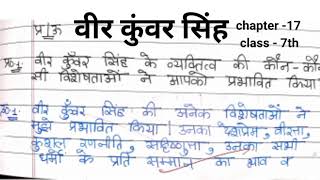 प्र/उ
वीर कुंवर सिंह
chapter -17
class - 7th
प्र०1. वीर कुँवर सिंह के व्यक्तित्व की कौन-कौन
सी विशेषताओं ने आपको प्रभावित किया
उ०1. वीर कुँवर सिंह की अनेक विशेषताओं ने
मुझे प्रभावित किया। उनका देशप्रेम, वीरता,
कुशल रणनीति, सहिष्णुता, उनका सभी
धर्मों के प्रति सम्मान का भाव व